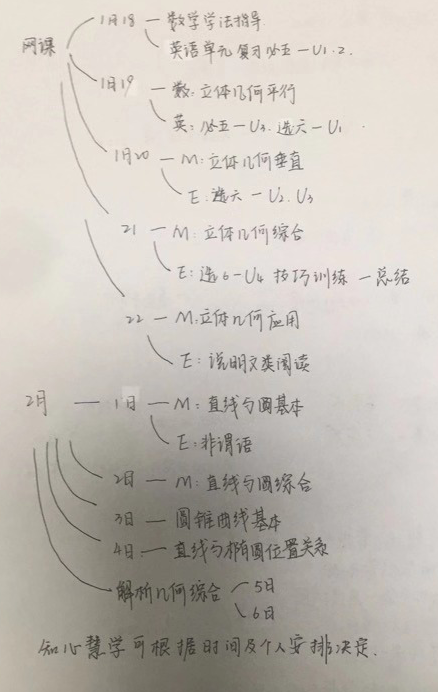 网课
1月18 — 数学学法指导.
英语单元复习必五-U1.2.
1月19 — 数:立体几何平行
英:必五-U3. 选六-U1.
1月20 — M:立体几何垂直
E:选六-U2.U3
21 — M:立体几何综合
E:选6-U4 技巧训练-总结
22 — M:立体几何应用
E:说明文类阅读
2月 — 1日 — M:直线与圆基本
E:非谓语
2日 — M:直线与圆综合
3日 — 圆锥曲线基本
4日 — 直线与椭圆位置关系
解析几何综合 5日
6日
知心慧学可根据时间及个人安排决定.